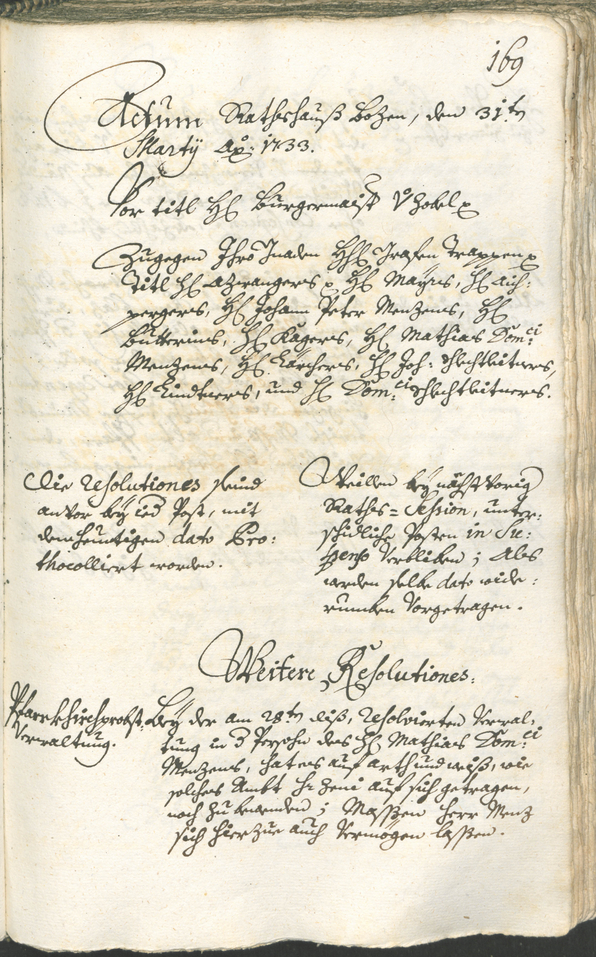 169
Actum Rathshauß Bozen, den 31tn
Martÿ Ao: 1733.
Vor titl H: Burgermaist: v: Zobel
Zugegen Ihro Gnaden HH: Grafen Trappen
titl H: Azwangers, H: Mayrs, H: Aich:
pergers, H: Johann Peter Menzens, H:
Butterins, H: Kagers, H: Mathias Domci:
Menzens, H: Kürchers, H: Joh: Schlechtleitners,
H: Lindtners, und H: Domci: Schlechtleitners.
Die resolutiones seind
anvor beÿ ied Post, mit
dem heuntigen dato Pro:
thocolliert worden.
Weillen beÿ nächst vorig
Raths= Session, unter:
schidliche Posten in Su:
spenso verbliben; Als
werden selbe dato wide:
rumben vorgetragen.
Weitere Resolutiones:
Pfarrkhirchprobst
Verwaltung.
Beÿ der am 28tn diß, resolvierten Verwal:
tung in d Persohn des H: Mathias Domci:
Menzens, hat es auf arth und weiß, wie
solches Ambt H: Zeni auf sich getragen,
noch zu bewenden; Massen Herr Menz
sich hierzue auch vermögen lassen.